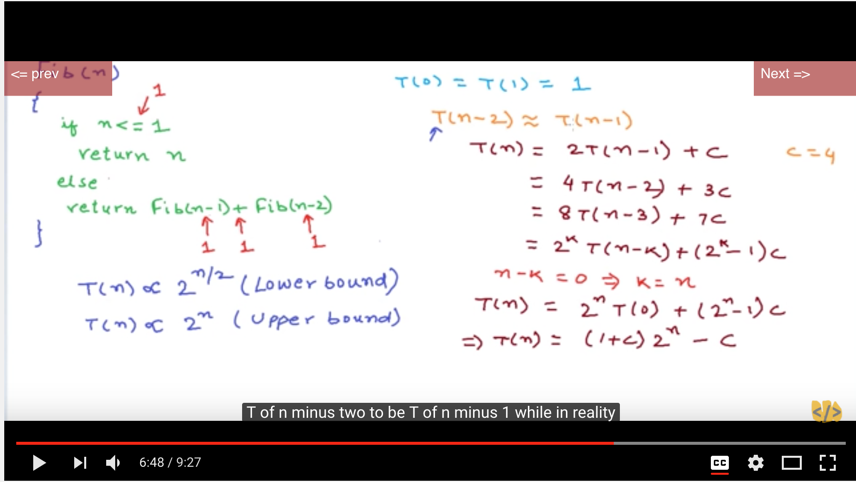 <= prev
Fib(n)
{
1
if n<=1
return n
else
return Fib(n-1)+ Fib(n-2)
1 1 1
}
T(n) ∝ 2^(n/2) (Lower bound)
T(n) ∝ 2^n (Upper bound)
Next =>
T(0) = T(1) = 1
T(n-2) ≈ T(n-1)
T(n) = 2T(n-1) + c c=4
= 4T(n-2) + 3c
= 8T(n-3) + 7c
= 2^k T(n-k)+(2^k-1)c
n-k=0 ⇒ k=n
T(n) = 2^n T(0) + (2^n-1)c
=> T(n) = (1+c) 2^n - c
T of n minus two to be T of n minus 1 while in reality
</>
6:48 / 9:27
CC